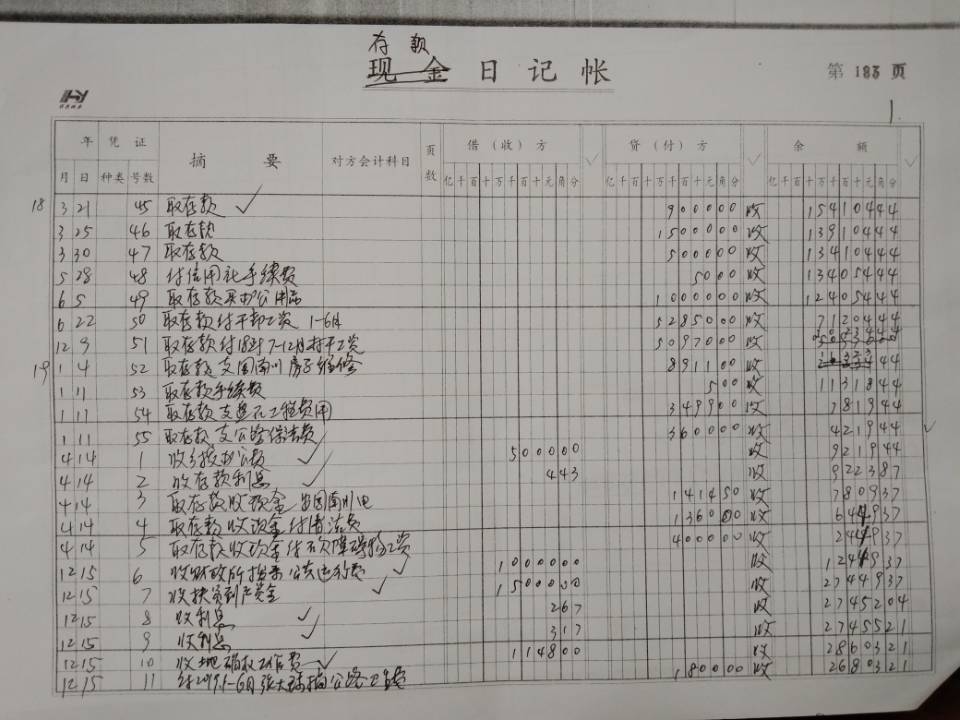 存款
现金日记帐
第 183 页
1
年 凭证 摘要 对方会计科目 页数 借(收)方 ✓ 贷(付)方 ✓ 余额 ✓
月 日 种类 号数 亿千百十万千百十元角分 亿千百十万千百十元角分 亿千百十万千百十元角分
18 3 21 45 取存款 ✓ 900000 收 15410444
3 25 46 取存款 1500000 收 13910444
3 30 47 取存款 500000 收 13410444
5 28 48 付信用社手续费 5000 收 13405444
6 5 49 取存款买办公用品 1000000 收 12405444
6 22 50 取存款付干部工资 1-6月 5285000 收 7120444
12 9 51 取存款付18年7-12月村干工资 5097000 收
19 1 4 52 取存款支 房子维修 891100 收
1 11 53 取存款手续费 500 收 1131844
1 11 54 取存款支 工程费用 349900 收 781944
1 11 55 取存款支公路保洁费 360000 收 421944
4 14 1 收乡拨办公款 ✓ 500000 收 921944
4 14 2 收存款利息 ✓ 443 收 922387
4 14 3 取存款收现金 141450 收 780937
4 14 4 取存款收现金付清洁费 136000 收 644937
4 14 5 取存款收现金付 工资 400000 收 244937
12 15 6 收财政所拨来公共运行费 ✓ 1000000 收 1244937
12 15 7 收扶贫到户资金 1500000 收 2744937
12 15 8 收利息 ✓ 267 收 2745204
12 15 9 收利息 ✓ 317 收 2745521
12 15 10 收地确权工作费 ✓ 114800 收 2860321
12 15 11 付2019.1-6月 公路工资费 180000 收 2680321